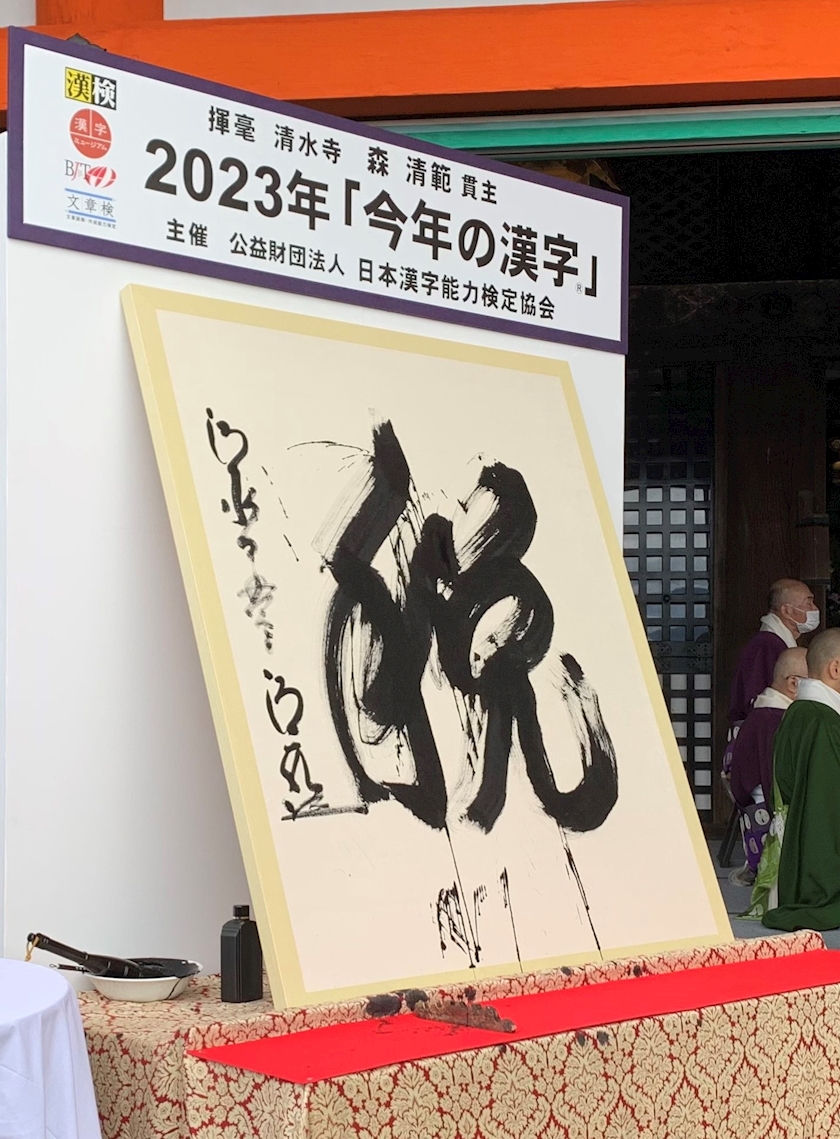 漢検
漢字
ミュージアム
BJT
文章検
揮毫 清水寺 森 清範 貫主
2023年「今年の漢字」®
主催 公益財団法人 日本漢字能力検定協会
税